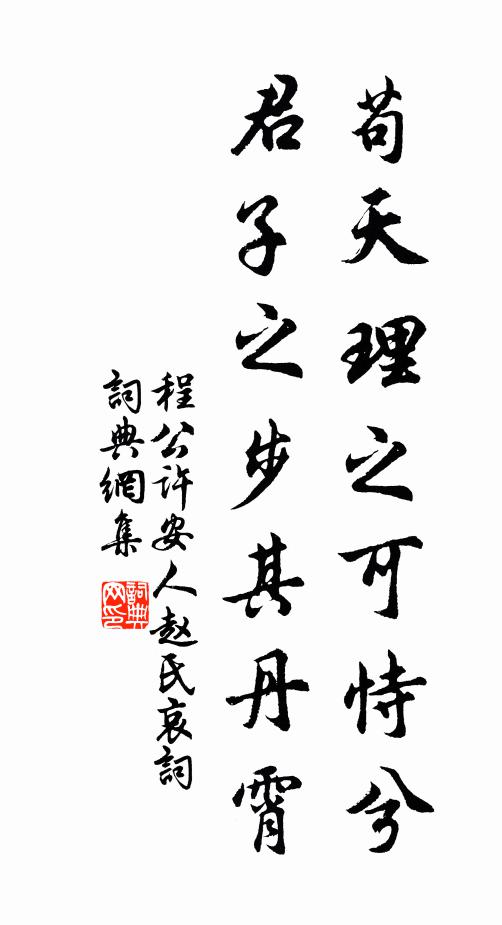 苟天理之可恃兮
君子之步其丹霄
程公许安人赵氏哀詞
詞典網集
詞典
网印